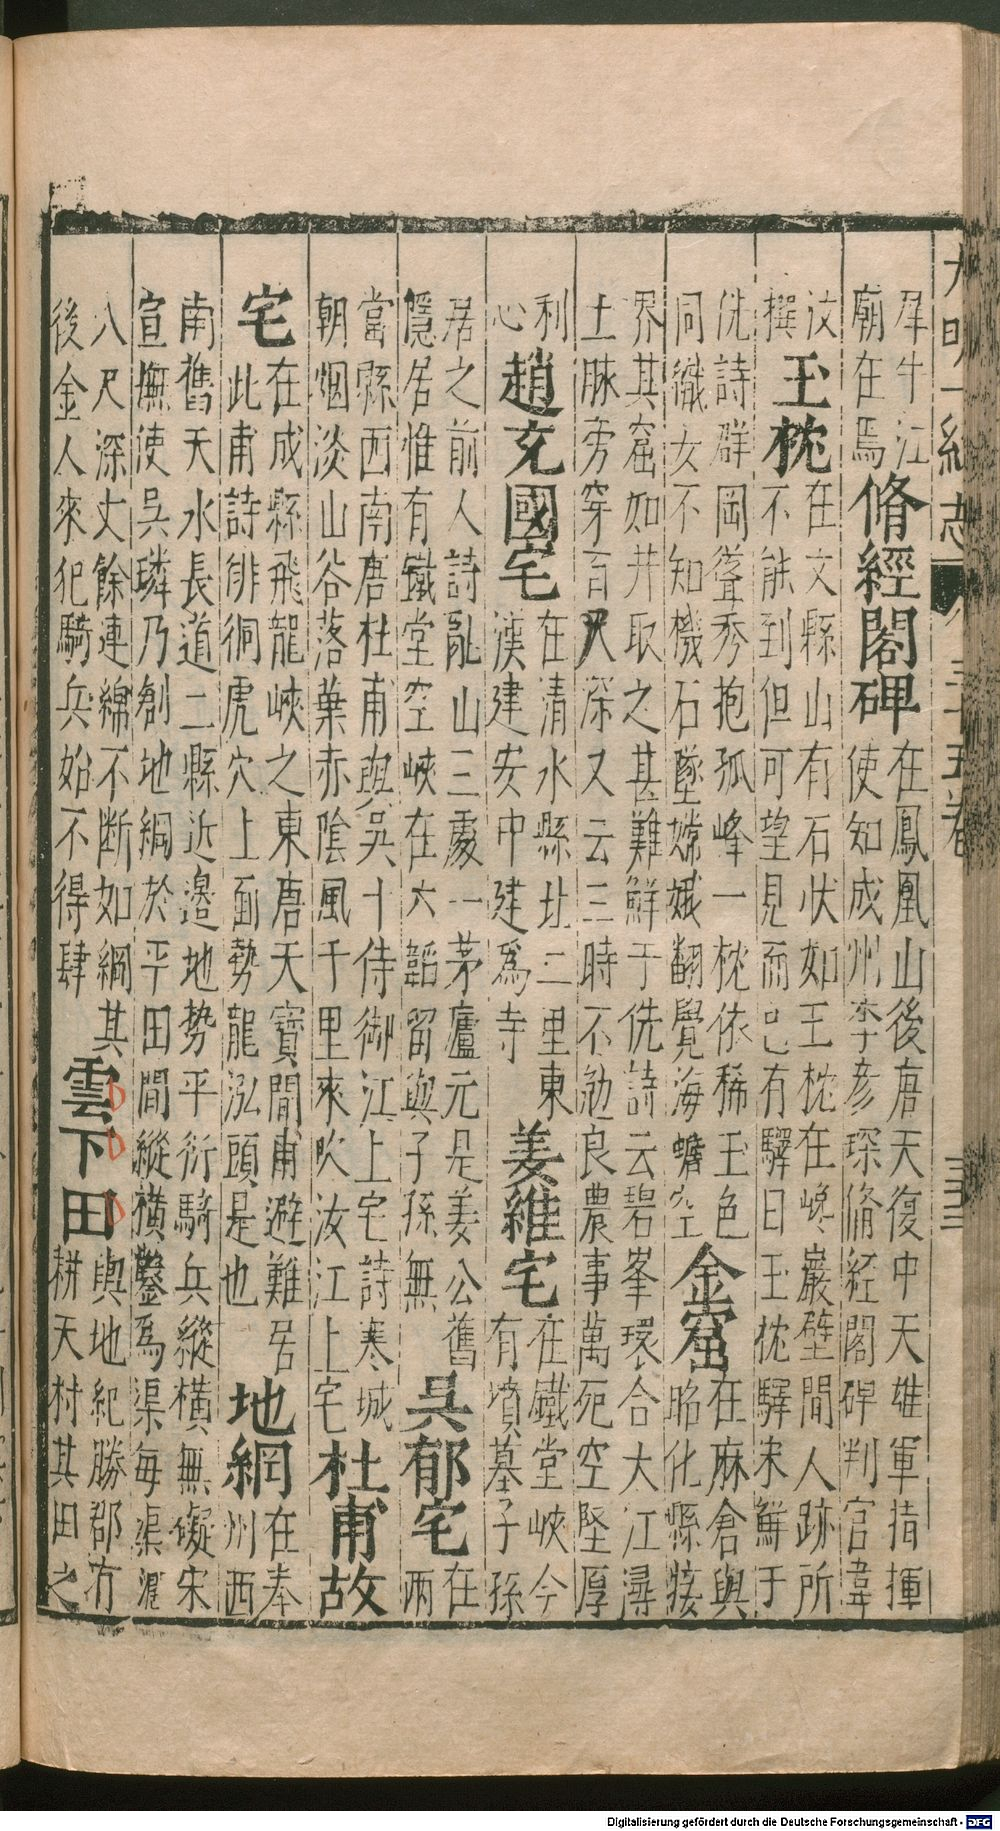 大明一統志 三十五卷 三三
犀牛江
廟在焉
脩經閣碑
在鳳凰山後唐天復中天雄軍指揮
使知成州李彦琛脩經閣碑判官韋
汶
撰
玉枕
在文縣山有石狀如玉枕在峰巖壁間人跡所
不能到但可望見而已有驛曰玉枕驛宋鮮于
侁詩群岡聳秀抱孤峰一枕依稀玉色
同織女不知機石墜嫦娥翻覺海蟾空
金窟
在麻倉與
昭化縣接
界其窟如井取之甚難鮮于侁詩云碧峯環合大江潯
土脉旁穿百尺深又云三時不勉良農事萬死空堅厚
利
心
趙充國宅
在清水縣北二里東
漢建安中建為寺
姜維宅
在鐵堂峽今
有墳墓子孫
居之前人詩亂山三處一茅廬元是姜公舊
隱居惟有鐵堂空峽在六韜留與子孫無
吳郁宅
在
兩
當縣西南唐杜甫與吳十侍御江上宅詩寒城
朝烟淡山谷落葉赤陰風千里來吹汝江上宅
杜甫故
宅
在成縣飛龍峽之東唐天寶間甫避難居
此甫詩徘徊虎穴上面勢龍泓頭是也
地網
在奉
州西
南舊天水長道二縣近邉地勢平衍騎兵縱橫無礙宋
宣撫使吳璘乃創地綱於平田間縱橫鑿為渠每渠濶
八尺深丈餘連綿不斷如綱其
後金人來犯騎兵始不得肆
雲下田
輿地紀勝郡有
耕天村其田之
Digitalisierung gefördert durch die Deutsche Forschungsgemeinschaft - DFG